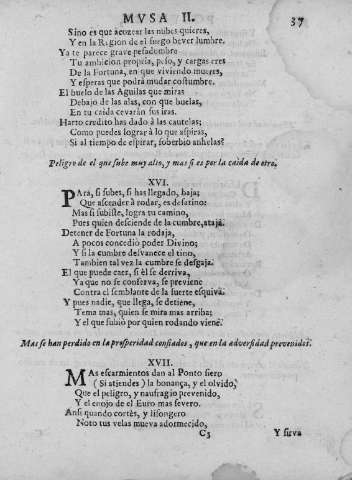 MVSA II. 37
Sino es que acozear las nubes quieres,
Y en la Region de el fuego bever lumbre.
Ya te parece grave pesadumbre
Tu ambicion propria, peso, y cargas eres
De la Fortuna, en que viviendo mueres,
Y esperas que podrá mudar costumbre.
El huelo de las Aguilas que miras
Debajo de las alas, con que buelas,
En tu caida cevarán sus iras.
Harto credito has dado à las cautelas;
Como puedes lograr à lo que aspiras,
Si al tiempo de espirar, soberbio anhelas?
Peligro de el que sube muy alto, y mas si es por la caida de otro.
XVI.
PARá, si subes, si has llegado, baja;
Que ascender à rodar, es desatino:
Mas si subiste, logra tu camino,
Pues quien desciende de la cumbre, atajá.
Detener de Fortuna la rodaja,
A pocos concediò poder Divino;
Y si la cumbre desvanece el tino,
Tambien tal vez la cumbre se desgaja.
El que puede caer, si èl se derriva,
Ya que no se conserva, se previene
Contra el semblante de la suerte esquiva.
Y pues nadie, que llega, se detiene,
Tema mas, quien se mira mas arriba;
Y el que subiò por quien rodando viene.
Mas se han perdido en la prosperidad confiados, que en la adversidad prevenidos.
XVII.
MAs escarmientos dan al Ponto fiero
(Si atiendes) la bonança, y el olvido,
Que el peligro, y naufragio prevenido,
Y el enojo de el Euro mas severo.
Ansi quando cortès, y lisongero
Noto tus velas mueva adormecido,
C3 Y sirva